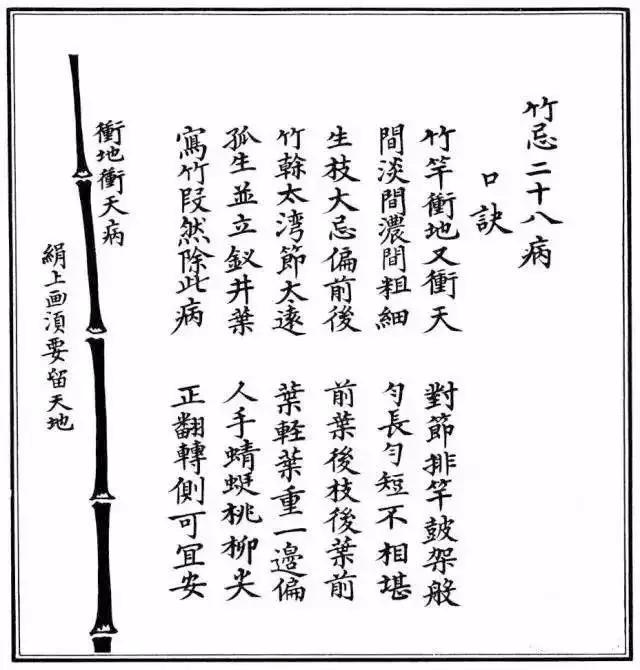 竹忌二十八病
口訣
竹竿衝地又衝天　對節排竿皷架般
間淡間濃間粗細　勻長勻短不相堪
生枝大忌偏前後　前葉後枝後葉前
竹榦太湾節太遠　葉軽葉重一邊偏
孤生並立釵井葉　人手蜻蜓桃柳尖
寫竹叚然除此病　正翻轉側可宜安
衝地衝天病
絹上画湏要留天地